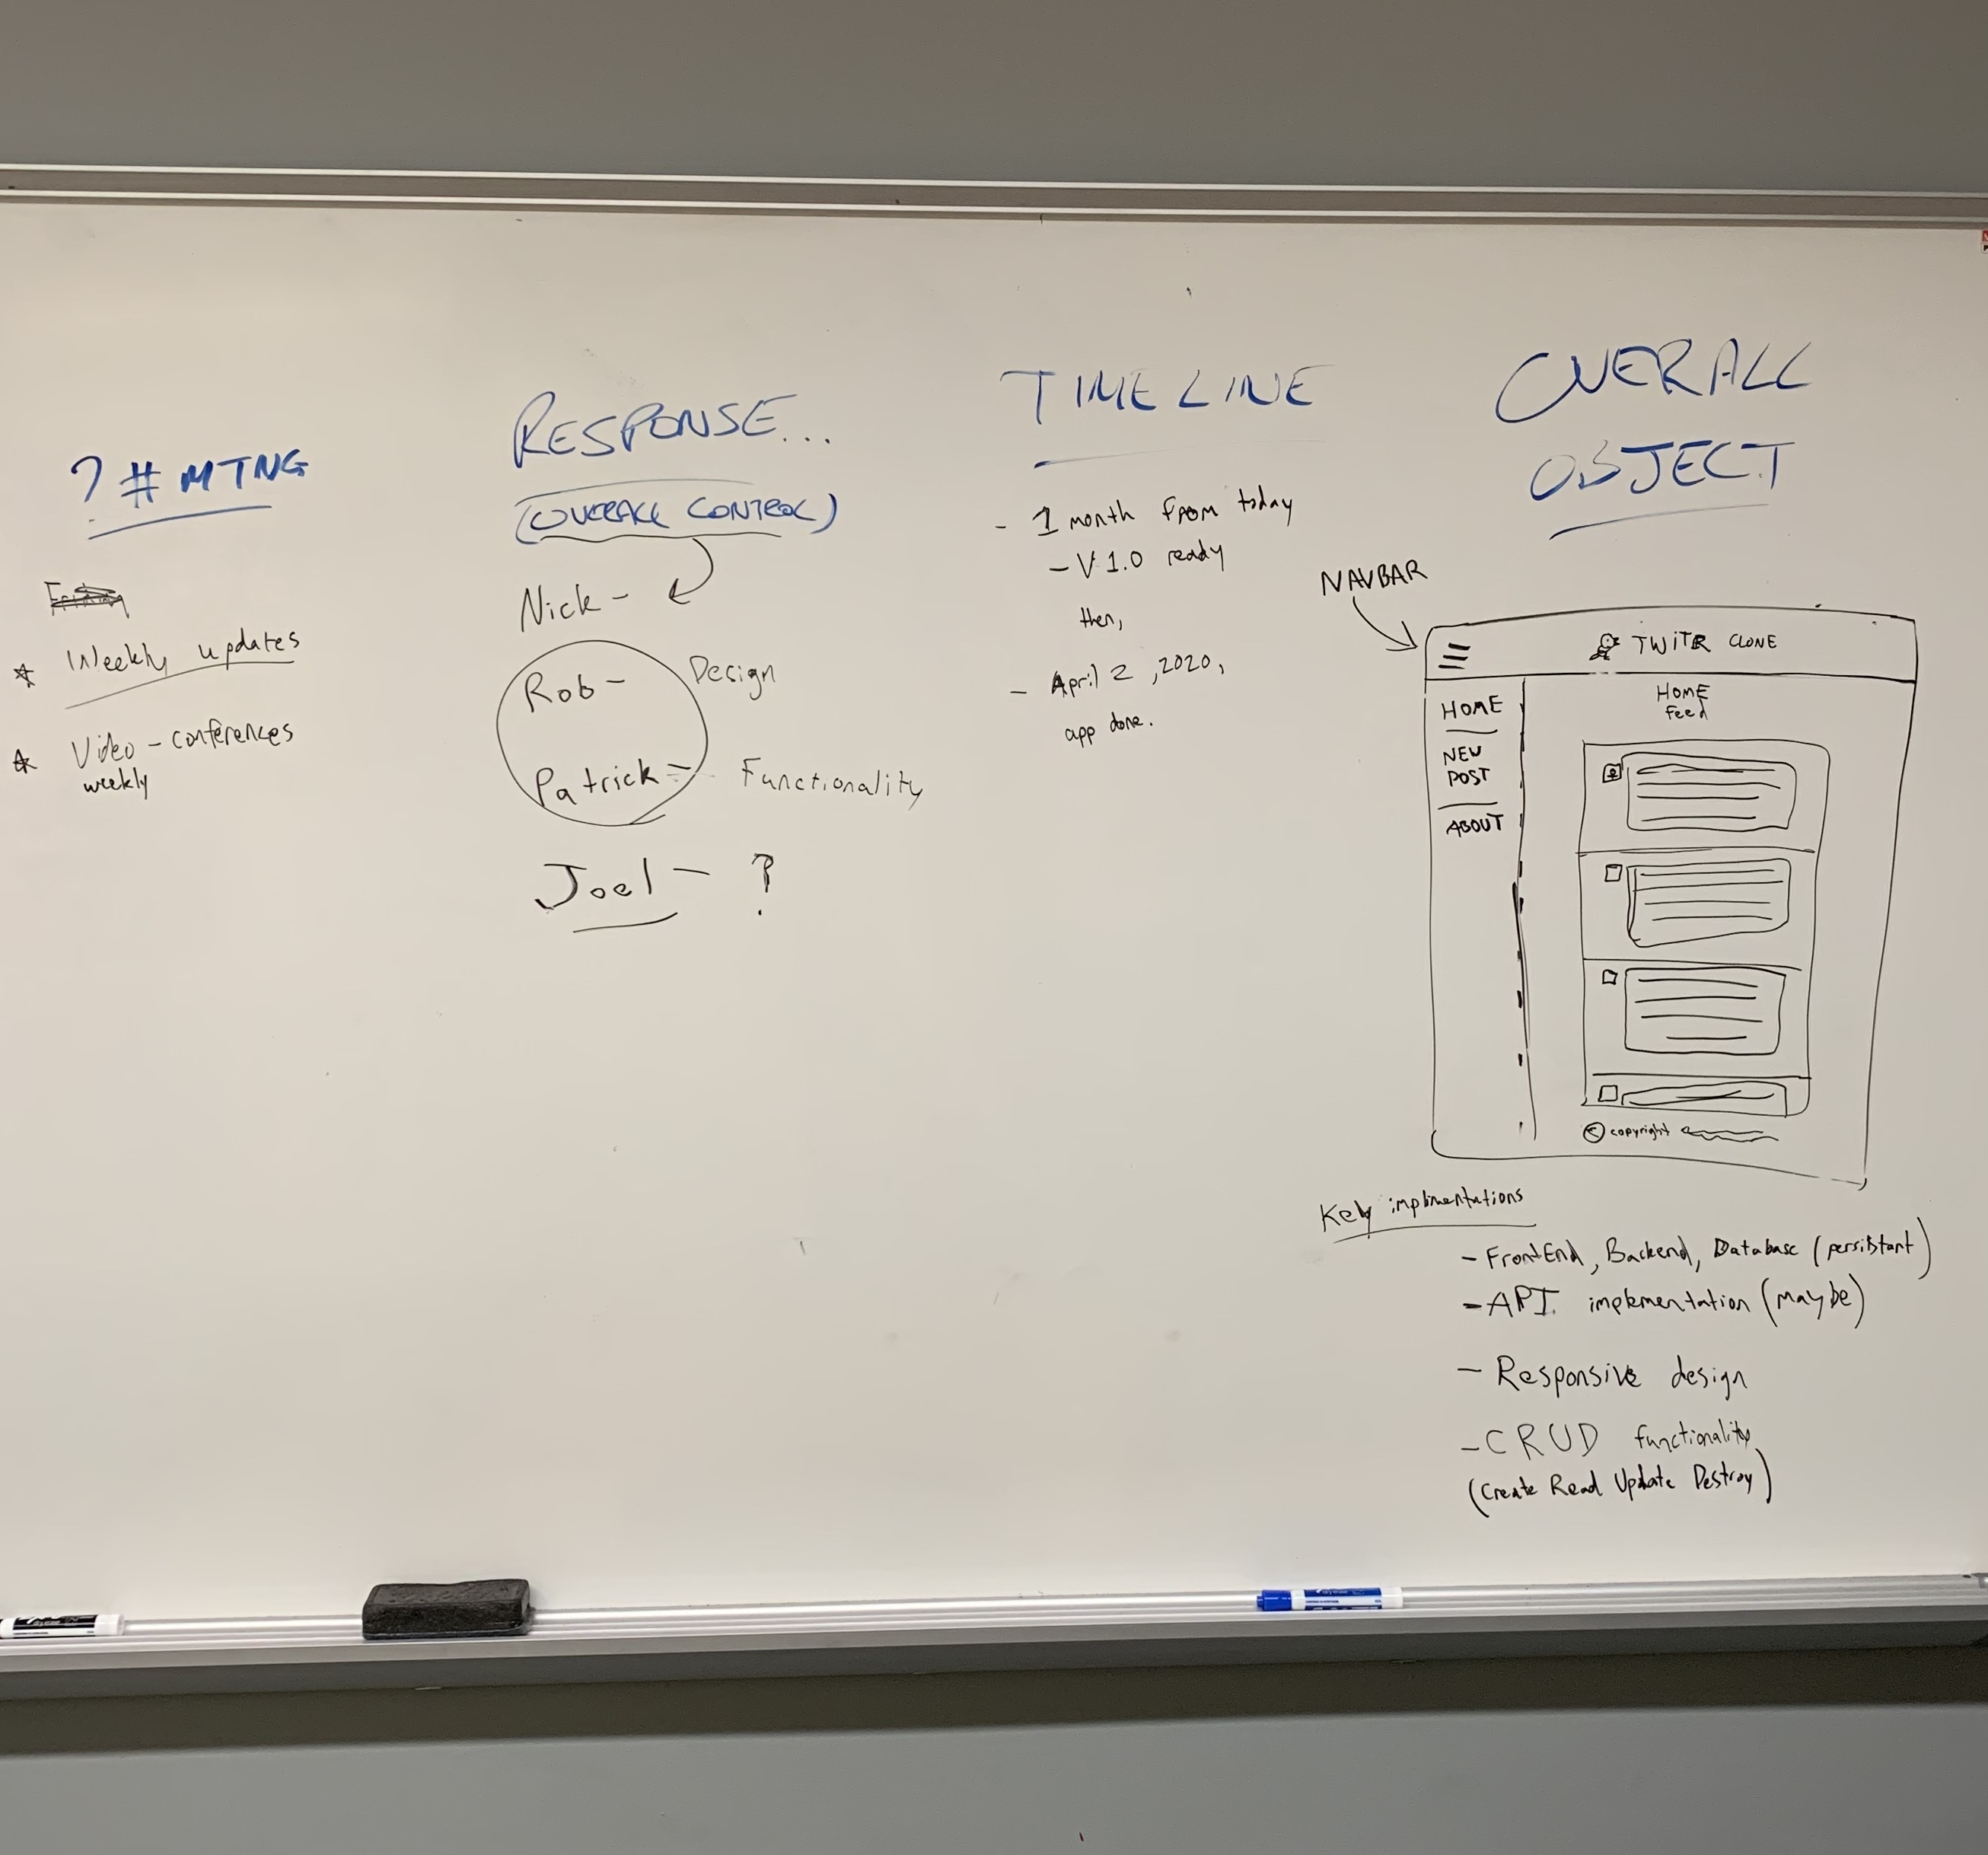 ? # MTNG
Weekly updates
Video - conferences
weekly
RESPONSE...
(OVERALL CONTROL)
Nick -
Rob -
Design
Patrick -
Functionality
Joel - ?
TIMELINE
- 1 month from today
- V 1.0 ready
then,
- April 2, 2020,
app done.
OVERALL
OBJECT
NAVBAR
TWITR CLONE
HOME
NEW
POST
ABOUT
HOME
Feed
© copyright
Key implimentations
- FrontEnd, Backend, Database (persistant)
- API implementation (maybe)
- Responsive design
- CRUD functionality
(Create Read Update Destroy)